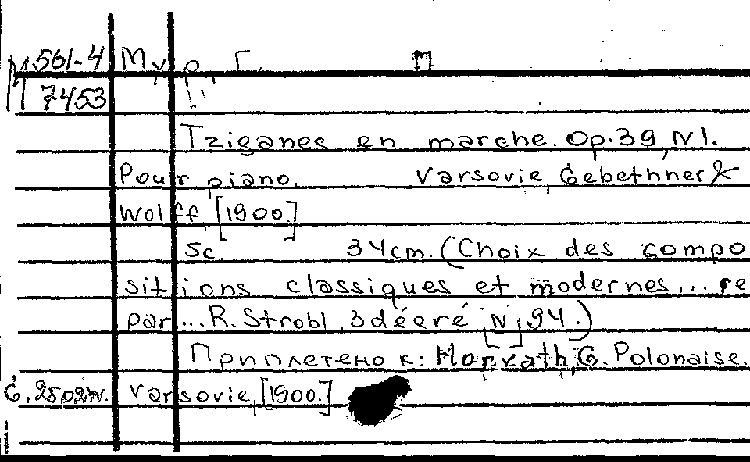 М 561-4 Мур, Г. П
7453
Tziganes en marche. Op. 39, N 1.
Pour piano. Varsovie, Gebethner &
Wolff, [1900.]
5c 34cm. (Choix des compo
sitions classiques et modernes... re
par... R. Strobl, 3 déeré, N 94.)
Приплетено к: Horvath, G. Polonaise.
Varsovie, [1900.]